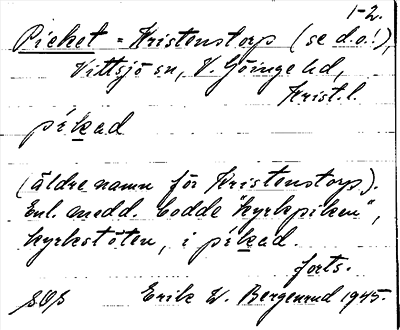 1-2.
Picket = Kristenstorp (se d.o.!),
Vittsjö sn, V. Göinge hd,
Krist. l.
pékad
(äldre namn för Kristenstorp).
Enl. medd. bodde "kyrkpiken",
kyrkstöten, i pékad.
forts.
Erik W. Bergenrud 1945.